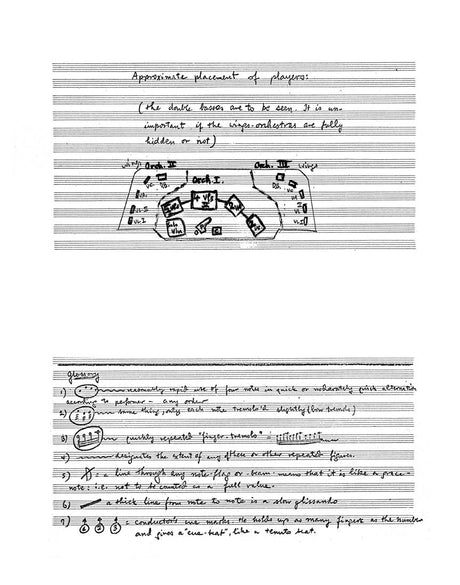 Approximate placement of players:
(the double basses are to be seen. It is un-
important if the wings-orchestras are fully
hidden or not)
wings Orch. II Orch. III wings
Orch I.
Vc. DB. Vc
Va.
Vl. II Vl. II
Vl. I Vl. I
Glossary
1) reasonably rapid use of four notes in quick or moderately quick alternation
according to performer - any order
2) same thing, only each note tremolo'd slightly (bow tremolo)
3) quickly repeated "finger-tremolo"
4) designates the extent of any of these or other repeated figures.
5) = a line through any note, flag or beam means that it is like a grace-
note: i.e. not to be counted as a full value.
6) a thick line from note to note is a slow glissando
7) 6 2 3 = conductor's cue marks. He holds up as many fingers as the number
and gives a "cue-beat", like a tenuto beat.